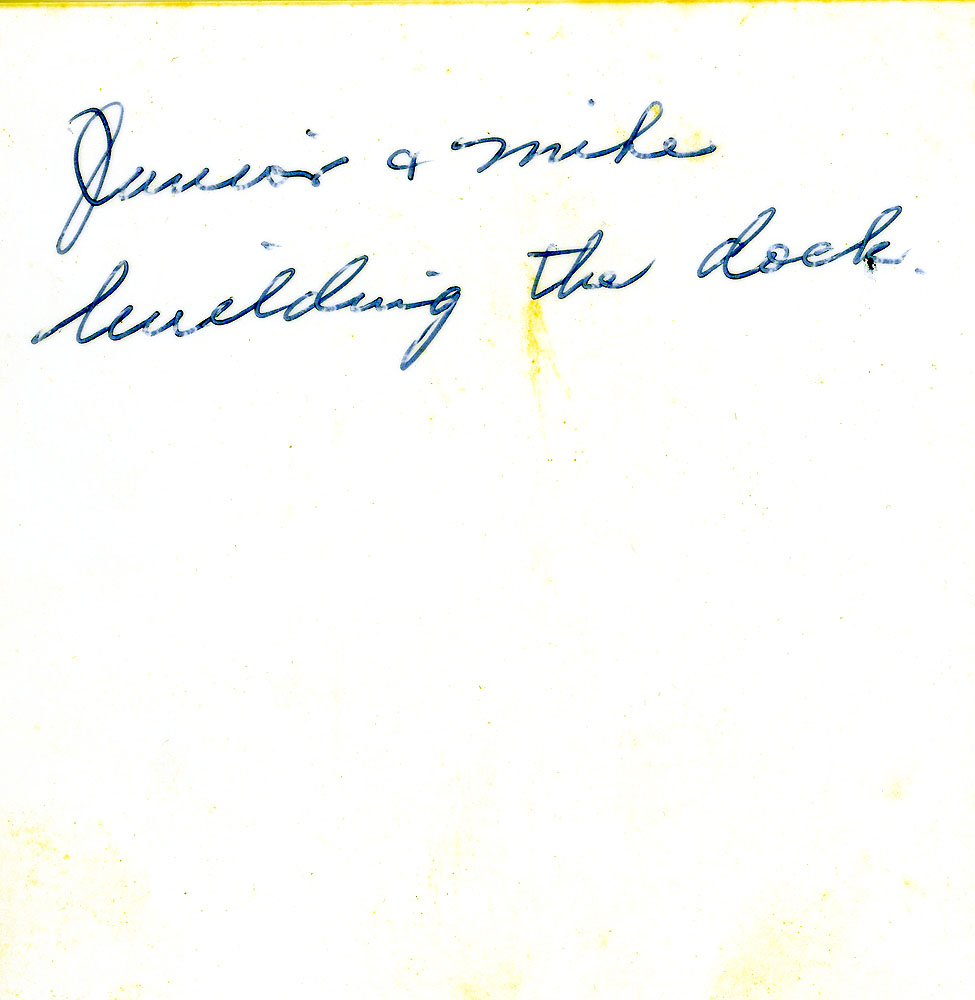 Junior & Mike
building the dock.